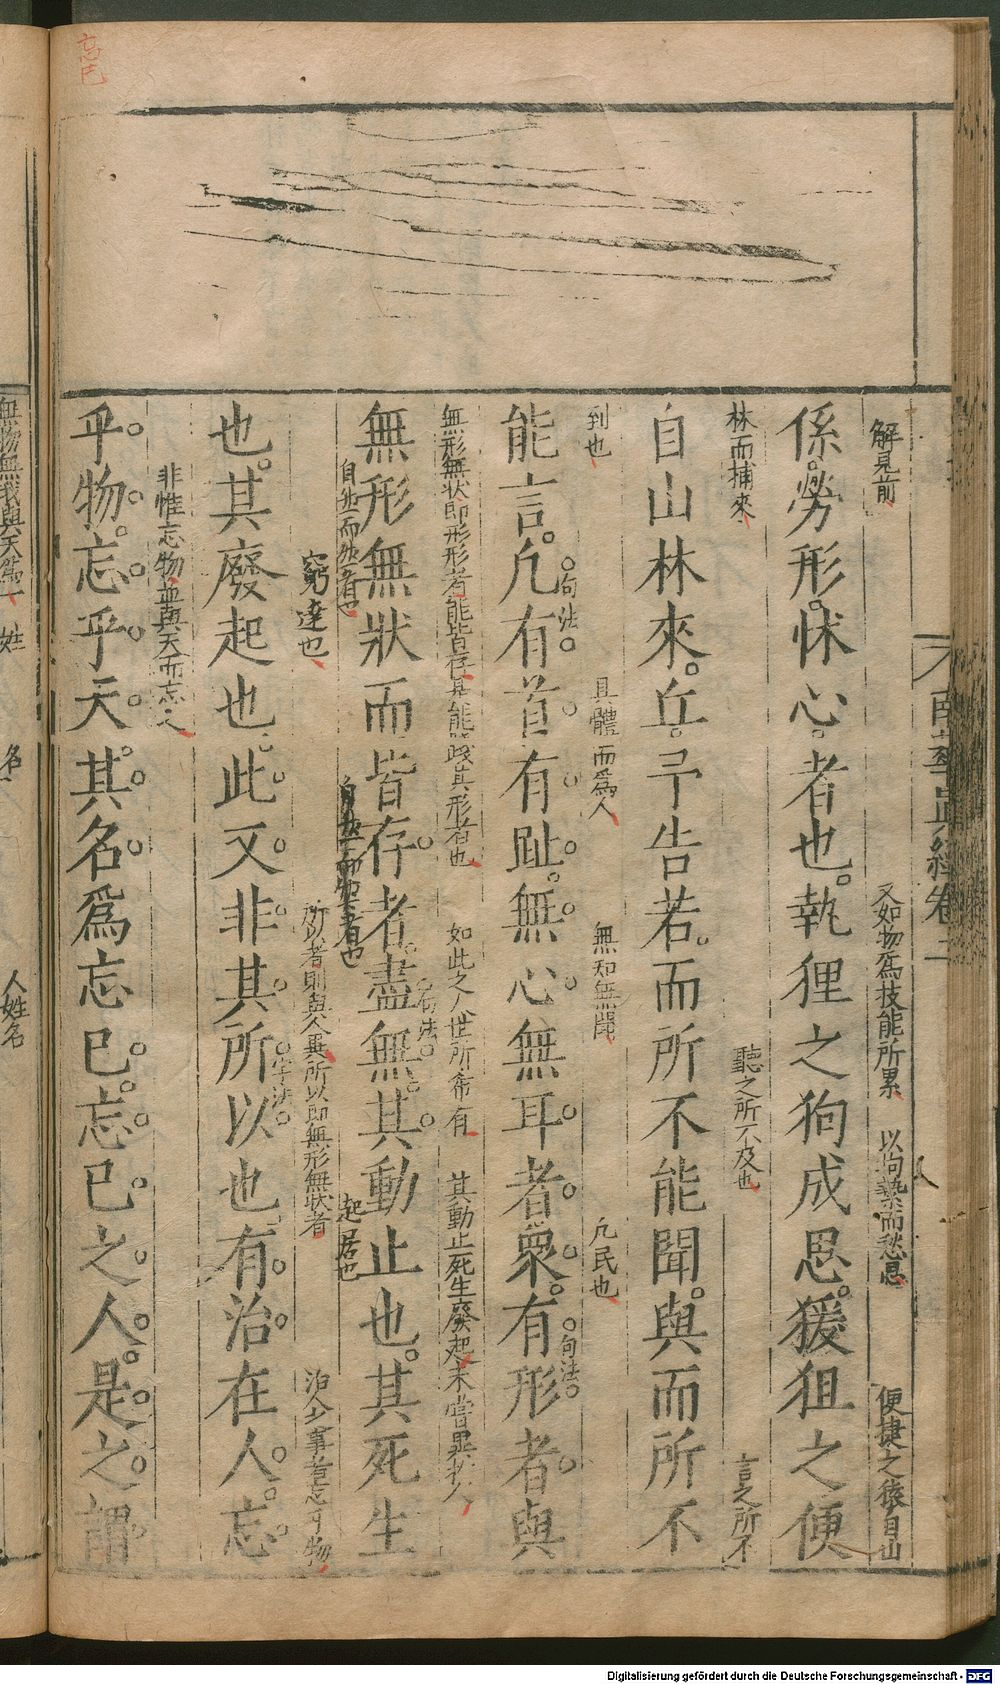 忘已
南華真經卷二
解見前
又如物爲技能所累
以拘縶而愁思
便捷之猿自山
係勞形怵心者也執狸之狗成思猨狙之便
林而捕來
聽之所不及也
言之所不
自山林來丘予告若而所不能聞與而所不
到也
具體而爲人
無知無聞
凡民也
能言凡有首有趾無心無耳者衆有形者與
句法
句法
無形無狀即形形者能皆存是能踐其形者也
如此之人世所希有
其動止死生廢起未嘗異於人
無形無狀而皆存者盡無其動止也其死生
句法
自然而然者也
自然而然者也
起居也
窮達也
所以者則與人異所以即無形無狀者
治人事者忘乎物
也其廢起也此又非其所以也有治在人忘
字法
非惟忘物並與天而忘之
乎物忘乎天其名爲忘已忘已之人是之謂
無物無我與天爲一
姓
名
人姓名
Digitalisierung gefördert durch die Deutsche Forschungsgemeinschaft - DFG